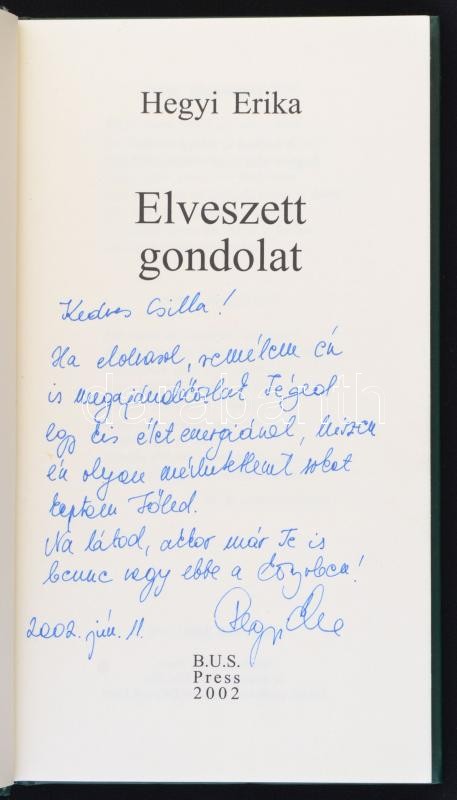 Hegyi Erika
Elveszett
gondolat
Kedves Csilla!
Ha elolvasod, remélem én
is megajándékozlat Téged
egy kis életenergiával, hiszen
én olyan mérhetetlenül sokat
kaptam Tőled.
Na látod, akkor már Te is
benne vagy ebbe a könyvben!
2002. jún. 11.
B.U.S.
Press
2002
darabanth